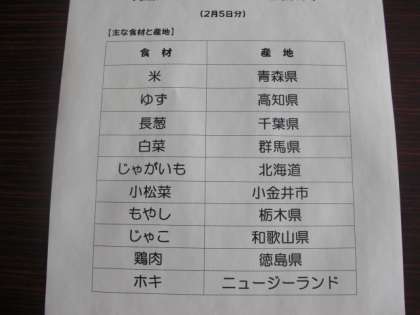 (2月5日分)
【主な食材と産地】
食材 産地
米 青森県
ゆず 高知県
長葱 千葉県
白菜 群馬県
じゃがいも 北海道
小松菜 小金井市
もやし 栃木県
じゃこ 和歌山県
鶏肉 徳島県
ホキ ニュージーランド